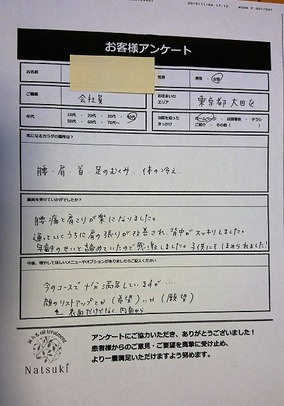 2015/11/04 17:12
お客様アンケート
お名前
性別
男性 ・ 女性
ご職業
会社員
お住まいの
エリア
東京都 大田区
年代
10代 ・ 20代 ・ 30代 ・ 40代
50代 ・ 60代 ・ 70代 ・ 80代
当院を知った
きっかけ
ホームページ ・ 店頭看板 ・ チラシ
ご紹介 ・ その他 ( )
気になるカラダの箇所は?
腰・肩・首・足のむくみ 体の冷え
施術を受けていかがでしたか?
腰痛と肩こりが楽になりました。
通っていくうちに肩の張りが改善され、背中がスッキリしました。
年齢のせいと諦めていたので
子供にもほめられました!
今後、増やしてほしいメニューやオプションがありましたらご記入ください。
今のコースで十分満足していますが…
顔のリストアップとか (希望)
(願望)
表面だけでなく、内側から
アンケートにご協力いただき、ありがとうございました!
患者様からのご意見・ご要望を真摯に受け止め、
より一層満足いただけますよう努めます。
Natsuki